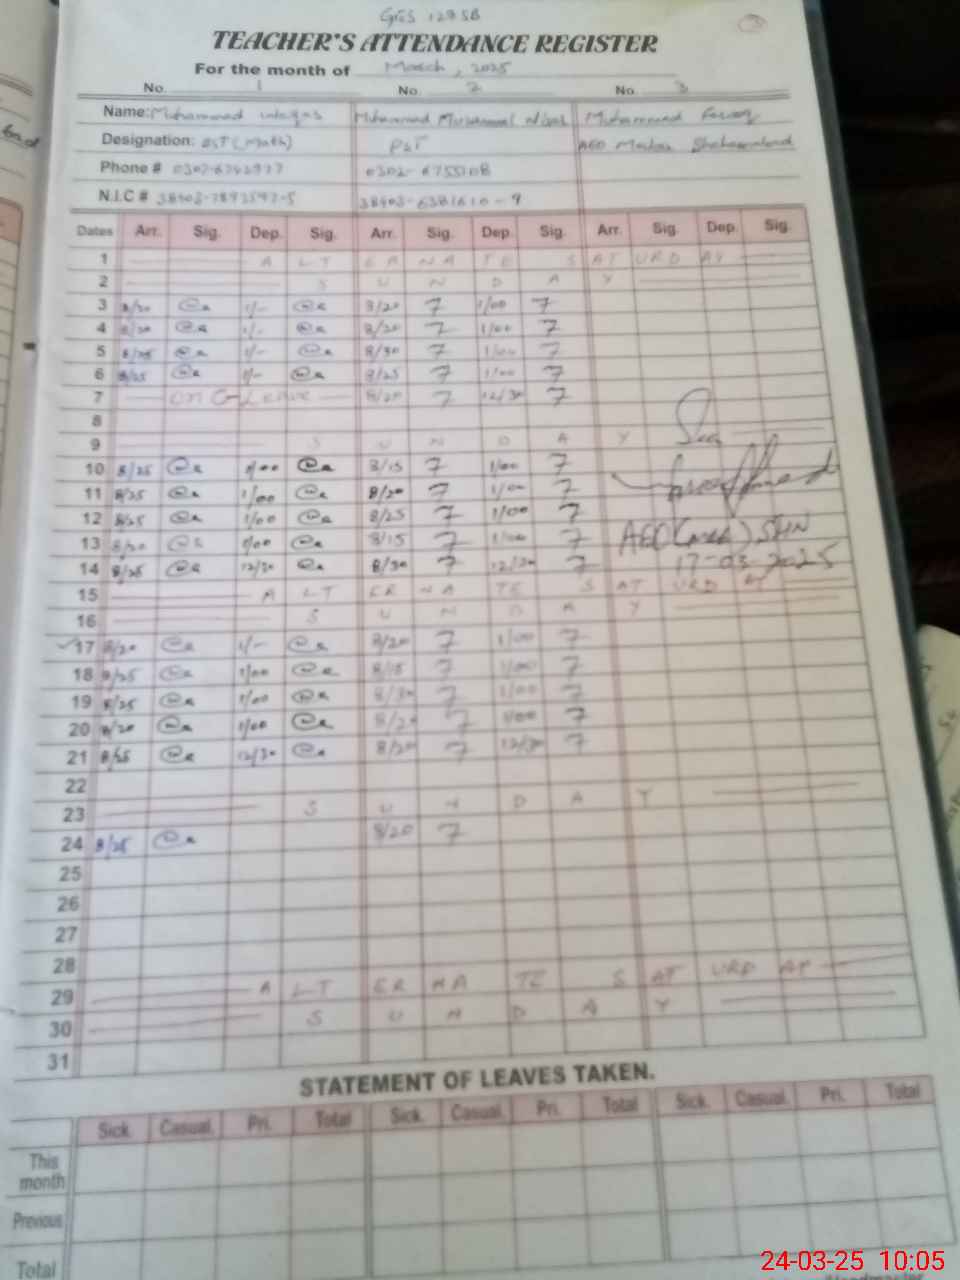 TEACHER'S ATTENDANCE REGISTER
For the month of March, 2025
No. 1 No. 2 No. 3
Name: Muhammad Muhammad Muhammad
Designation: EST (Math) PST AEO
Phone # 0302-6755108
N.I.C # 38403-6381610-9
Dates Arr. Sig. Dep. Sig. Arr. Sig. Dep. Sig. Arr. Sig. Dep. Sig.
1 A LT ER NA TE S AT URD AY
2 S U N D A Y
3 8/20 1/- 8/20 7 1/00 7
4 8/20 1/- 8/20 7 1/00 7
5 8/25 1/- 8/30 7 1/00 7
6 8/25 1/- 8/25 7 1/00 7
7 on C-Leave 8/20 7 12/30 7
8
9 S U N D A Y
10 8/25 1/00 8/15 7 1/00 7
11 8/25 1/00 8/20 7 1/00 7
12 8/25 1/00 8/25 7 1/00 7
13 8/20 1/00 8/15 7 1/00 7 AEO SHN
14 8/25 12/30 8/30 7 12/30 7 17-03-2025
15 A LT ER NA TE S AT URD AY
16 S U N D A Y
17 8/20 1/- 8/20 7 1/00 7
18 8/25 1/00 8/15 7 1/00 7
19 8/25 1/00 8/30 7 1/00 7
20 8/20 1/00 7 1/00 7
21 8/25 12/30 8/20 7 12/30 7
22
23 S U N D A Y
24 8/25 8/20 7
25
26
27
28
29 A LT ER NA TE S AT URD AY
30 S U N D A Y
31
STATEMENT OF LEAVES TAKEN.
Sick. Casual. Pri. Total Sick. Casual. Pri. Total Sick. Casual. Pri. Total
This month
Previous
Total
24-03-25 10:05